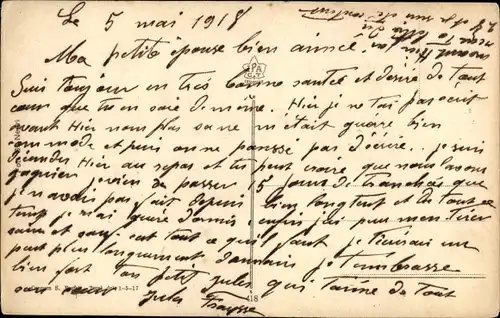 Le 5 mai 1918
Ma petite épouse bien aimée
Suis toujour en très bonne santée et désire de tout
cœur que tu en soie de même. Hier je ne tai pas écrit
avant Hier non plus sa ne m'était guère bien
commode et puis on ne pansse pas décrire.. je suis
décendus Hier au repos et tu peut croire que nous lavons
gagnier je vien de passer 15 jours de tranchés que
je n'avais pas fait depuis bien longtent et du tout ce
temp je n'ai guère dormis enfin j'ai pus men tirer
saint et sauf cet tout ce qu'il faut je técrirai un
peut plus longuement demain je t'embrasse
bien fort ton petit Jules qui t'aime de tout
son cœur Jules Fraysse
418